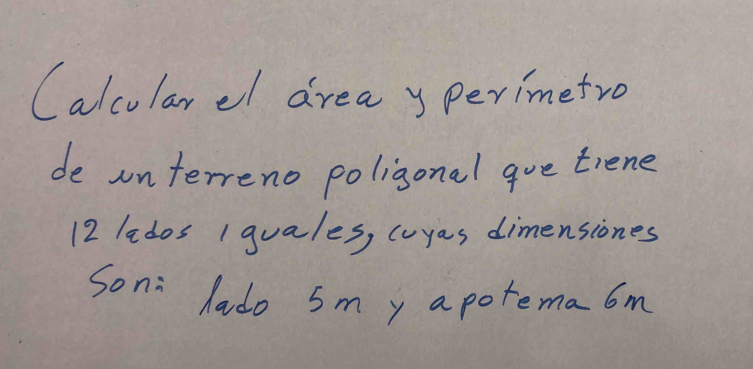 Calcular el área y perímetro
de un terreno poligonal que tiene
12 lados iguales, cuyas dimensiones
son: lado 5m y apotema 6m